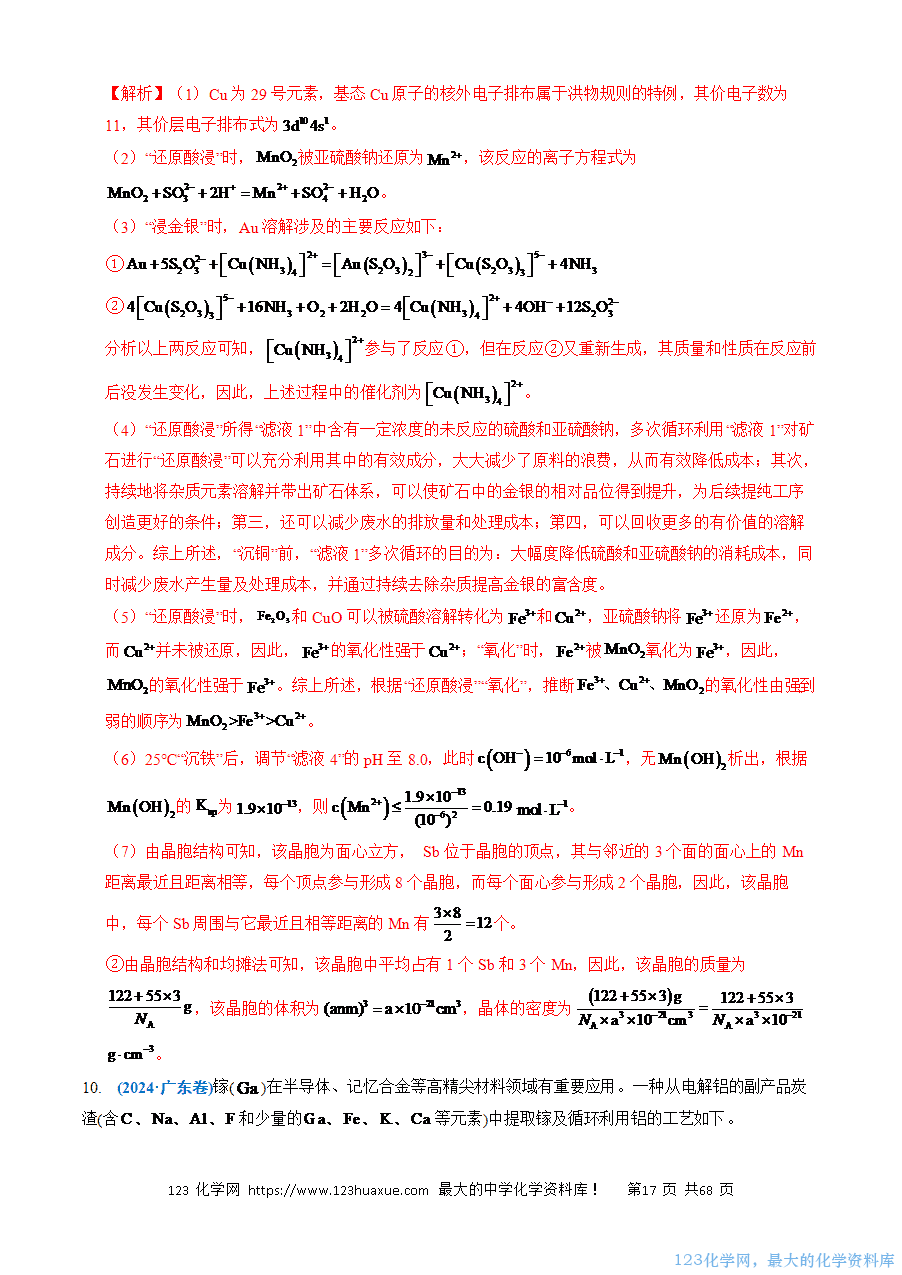 【解析】（1）Cu为29号元素，基态Cu原子的核外电子排布属于洪物规则的特例，其价电子数为
11，其价层电子排布式为3d¹⁰4s¹。
（2）“还原酸浸”时，MnO₂被亚硫酸钠还原为Mn²⁺，该反应的离子方程式为
MnO₂+SO₃²⁻+2H⁺=Mn²⁺+SO₄²⁻+H₂O。
（3）“浸金银”时，Au溶解涉及的主要反应如下：
①Au+5S₂O₃²⁻+[Cu(NH₃)₄]²⁺=[Au(S₂O₃)₂]³⁻+[Cu(S₂O₃)₃]⁵⁻+4NH₃
②4[Cu(S₂O₃)₃]⁵⁻+16NH₃+O₂+2H₂O=4[Cu(NH₃)₄]²⁺+4OH⁻+12S₂O₃²⁻
分析以上两反应可知，[Cu(NH₃)₄]²⁺参与了反应①，但在反应②又重新生成，其质量和性质在反应前
后没发生变化，因此，上述过程中的催化剂为[Cu(NH₃)₄]²⁺。
（4）“还原酸浸”所得“滤液1”中含有一定浓度的未反应的硫酸和亚硫酸钠，多次循环利用“滤液1”对矿
石进行“还原酸浸”可以充分利用其中的有效成分，大大减少了原料的浪费，从而有效降低成本；其次，
持续地将杂质元素溶解并带出矿石体系，可以使矿石中的金银的相对品位得到提升，为后续提纯工序
创造更好的条件；第三，还可以减少废水的排放量和处理成本；第四，可以回收更多的有价值的溶解
成分。综上所述，“沉铜”前，“滤液1”多次循环的目的为：大幅度降低硫酸和亚硫酸钠的消耗成本，同
时减少废水产生量及处理成本，并通过持续去除杂质提高金银的富含度。
（5）“还原酸浸”时，Fe₂O₃和CuO可以被硫酸溶解转化为Fe³⁺和Cu²⁺，亚硫酸钠将Fe³⁺还原为Fe²⁺，
而Cu²⁺并未被还原，因此，Fe³⁺的氧化性强于Cu²⁺；“氧化”时，Fe²⁺被MnO₂氧化为Fe³⁺，因此，
MnO₂的氧化性强于Fe³⁺。综上所述，根据“还原酸浸”“氧化”，推断Fe³⁺、Cu²⁺、MnO₂的氧化性由强到
弱的顺序为MnO₂>Fe³⁺>Cu²⁺。
（6）25℃“沉铁”后，调节“滤液4”的pH至8.0，此时c(OH⁻)=10⁻⁶mol·L⁻¹，无Mn(OH)₂析出，根据
Mn(OH)₂的Kₛₚ为1.9×10⁻¹³，则c(Mn²⁺)≤1.9×10⁻¹³/(10⁻⁶)²=0.19 mol·L⁻¹。
（7）由晶胞结构可知，该晶胞为面心立方， Sb位于晶胞的顶点，其与邻近的3个面的面心上的Mn
距离最近且距离相等，每个顶点参与形成8个晶胞，而每个面心参与形成2个晶胞，因此，该晶胞
中，每个Sb周围与它最近且相等距离的Mn有3×8/2=12个。
②由晶胞结构和均摊法可知，该晶胞中平均占有1个Sb和3个Mn，因此，该晶胞的质量为
(122+55×3)/N_A g，该晶胞的体积为(anm)³=a×10⁻²¹cm³，晶体的密度为(122+55×3)g/(N_A×a³×10⁻²¹cm³)=(122+55×3)/(N_A×a³×10⁻²¹)
g·cm⁻³。
10. (2024·广东卷)镓(Ga)在半导体、记忆合金等高精尖材料领域有重要应用。一种从电解铝的副产品炭
渣(含C、Na、Al、F和少量的Ga、Fe、K、Ca等元素)中提取镓及循环利用铝的工艺如下。
123 化学网 https://www.123huaxue.com 最大的中学化学资料库！ 第17 页 共68 页
123化学网，最大的化学资料库